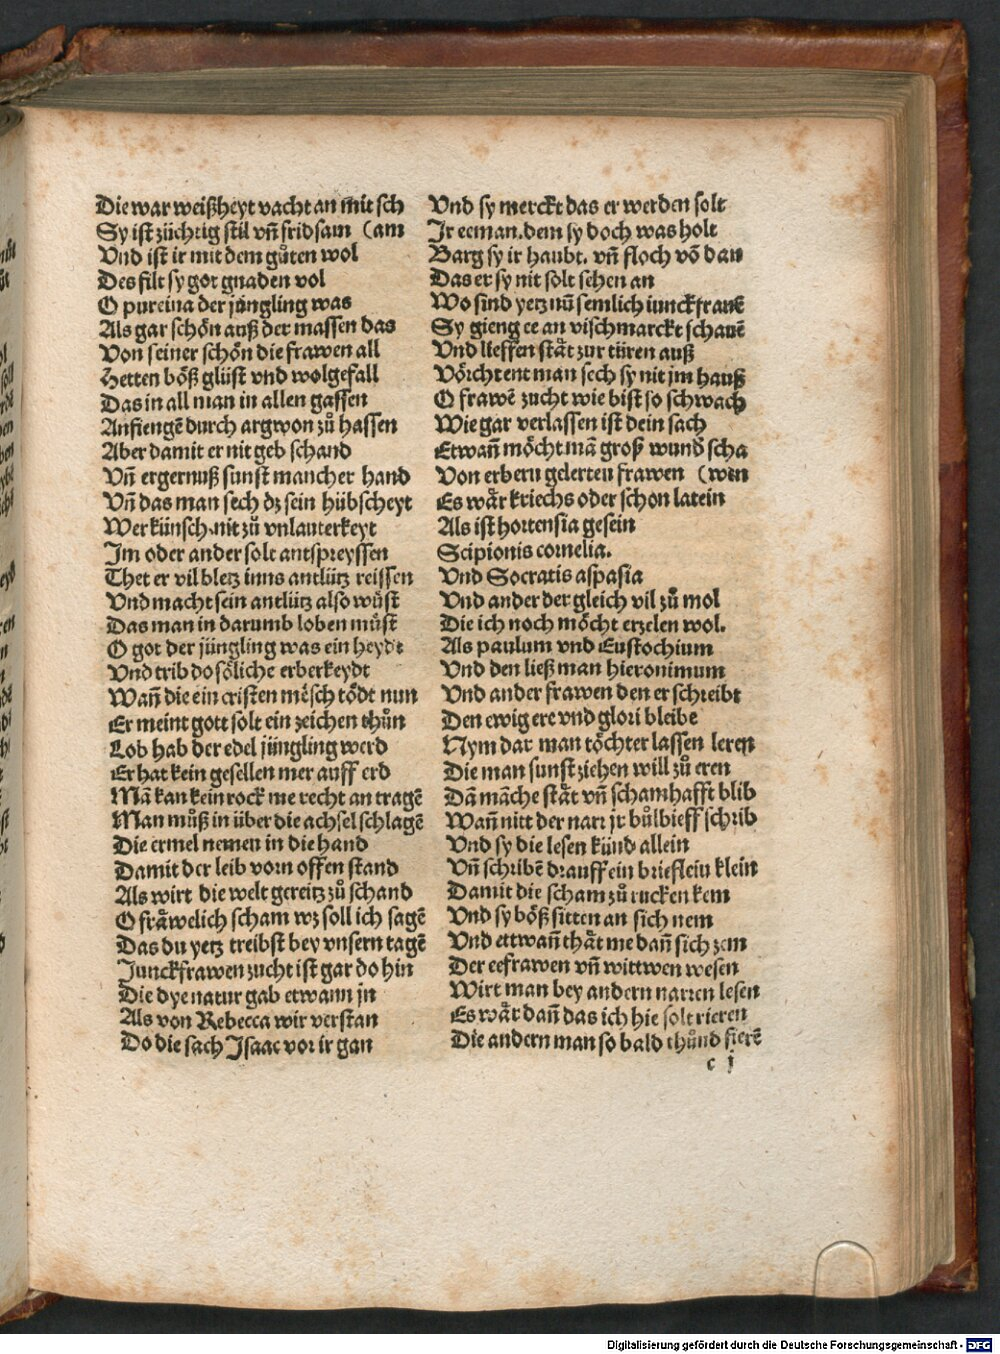 Die war weißheyt vacht an mit sch
Sy ist züchtig stil vñ fridsam (am
Vnd ist ir mit dem gůten wol
Des filt sy got gnaden vol
O pureina der jüngling was
Als gar schön auß der massen das
Von seiner schön die frawen all
Hetten böß glüst vnd wolgefall
Das in all man in allen gassen
Anfiengē durch argwon zů hassen
Aber damit er nit geb schand
Vñ ergernuß sunst mancher hand
Vñ das man sech dz sein hübscheyt
Wer künsch nit zů vnlauterkeyt
Im oder ander solt antspreyssen
Thet er vil bletz inns antlütz reissen
Vnd macht sein antlütz also wüst
Das man in darumb loben müst
O got der jüngling was ein heydt
Vnd trib do söliche erberkeydt
Wañ die ein cristen mēsch tödt nun
Er meint gott solt ein zeichen thůn
Lob hab der edel jüngling werd
Er hat kein gesellen mer auff erd
Mā kan kein rock me recht an tragē
Man můß in über die achsel schlagē
Die ermel nemen in die hand
Damit der leib vorn offen stand
Als wirt die welt gereitz zů schand
O fräwelich scham wz soll ich sagē
Das du yetz treibst bey vnsern tagē
Junckfrawen zucht ist gar do hin
Die dye natur gab etwann jn
Als von Rebecca wir verstan
Do die sach Isaac vor ir gan
Vnd sy merckt das er werden solt
Ir eeman. dem sy doch was holt
Barg sy ir haubt. vñ floch vō dan
Das er sy nit solt sehen an
Wo sind yetz nů semlich iunckfrauē
Sy gieng ee an vischmarckt schauē
Vnd lieffen stät zur türen auß
Vörcht ent man sech sy nit jm hauß
O frawē zucht wie bist so schwach
Wie gar verlassen ist dein sach
Etwañ möcht mā groß wund scha
Von erberu gelerteu frawen (wen
Es wär kriechs oder schon latein
Als ist hortensia gesein
Scipionis cornelia.
Vnd Socratis aspasia
Vnd ander der gleich vil zů mol
Die ich noch möcht erzelen wol.
Als paulum vnd Eustochium
Vnd den ließ man hieronimum
Vnd ander frawen den er schreibt
Den ewig ere vnd glori bleibe
Nym dar man töchter lassen leren
Die man sunst ziehen will zů eren
Dā māche stät vñ schamhafft blib
Wañ nitt der narr jr bůlbieff schrib
Vnd sy die lesen künd allein
Vñ schribē drauff ein brieflein klein
Damit die scham zů rucken kem
Vnd sy böß sitten an sich nem
Vnd ettwañ thät me dañ sich zem
Der eefrawen vñ wittwen wesen
Wirt man bey andern narren lesen
Es wär dañ das ich hie solt rieren
Die andern man so bald thůnd fierē
c j
Digitalisierung gefördert durch die Deutsche Forschungsgemeinschaft - DFG